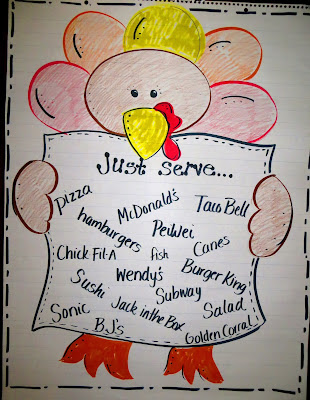 Just serve...
pizza
McDonald's
Taco Bell
hamburgers
PeiWei
Canes
Chick Fil-A
fish
Burger King
Wendy's
Sushi
Subway
Salad
Sonic
Jack in the Box
BJ's
Golden Corral